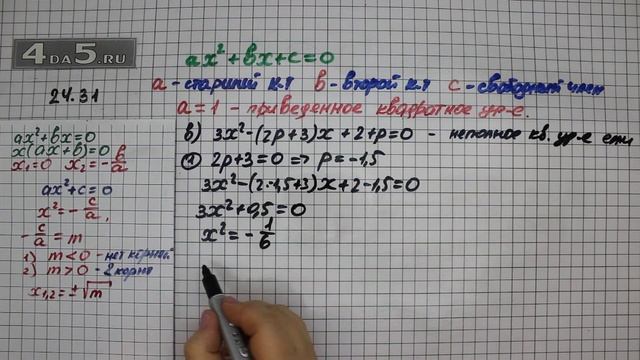 4DA5.RU
24.31
ax²+bx+c=0
a - старший к.т b - второй к.т c - свободный член
a=1 - приведенное квадратное ур-е.
ax²+bx=0
x(ax+b)=0
x₁=0 x₂=-b/a
ax²+c=0
x²=-c/a,
-c/a=m
1) m<0 - нет корней
2) m>0 - 2 корня
x₁,₂=±√m
в) 3x²-(2p+3)x+2+p=0 - неполное кв. ур-е если
① 2p+3=0 => p=-1,5
3x²-(2·-1,5+3)x+2-1,5=0
3x²+0,5=0
x²=-1/6